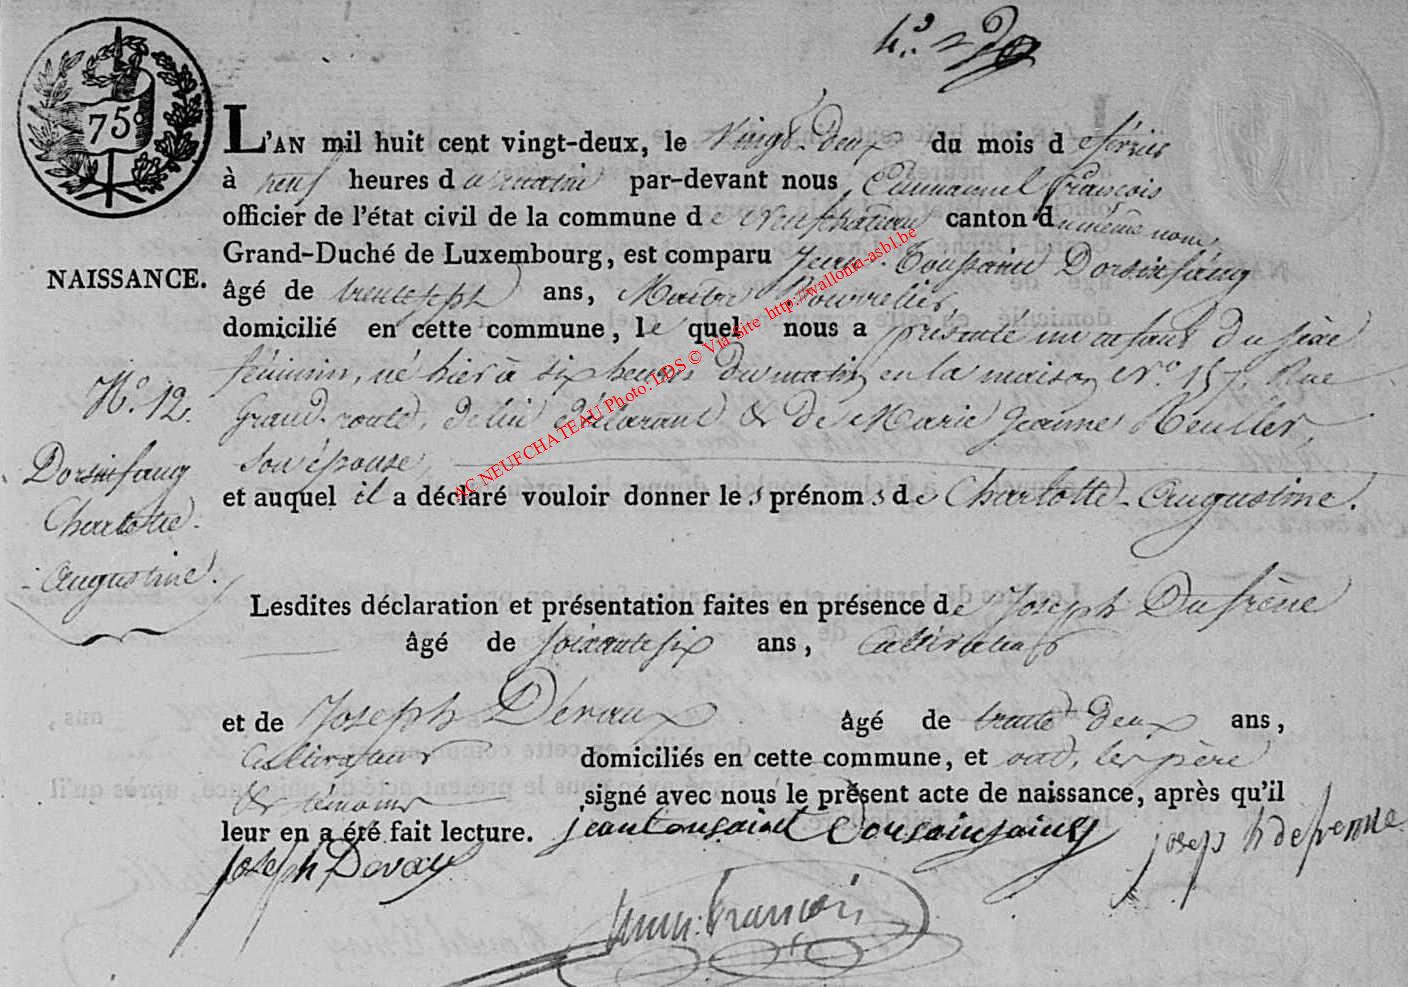 75
L'AN mil huit cent vingt-deux, le vingt-deux du mois d février
à neuf heures d u matin par-devant nous Emmanuel François
officier de l'état civil de la commune d e Neufchateau canton d u même nom
Grand-Duché de Luxembourg, est comparu Jean-Toussaint Dorsinfaing
NAISSANCE.
âgé de trentesept ans, Maitre Bourrelier
domicilié en cette commune, le quel nous a présenté un enfant du sèxe
féminin, né hier à six heures du matin, en la maison N.o 157, Rue
N.o 12.
Grand-route, de lui déclarant & de Marie Jeanne Neuller,
Dorsinfaing
son épouse,
et auquel il a déclaré vouloir donner le s prénom s d e Charlotte-Augustine.
Charlotte
Augustine.
Lesdites déclaration et présentation faites en présence d e Joseph Dufrène
âgé de soixantesix ans, Cultivateur
et de Joseph Dévaux âgé de trente deux ans,
Cultivateur domiciliés en cette commune, et ont, les père
& témoins signé avec nous le présent acte de naissance, après qu'il
leur en a été fait lecture. jean tousaint Dorsainfaing
joseph defrenne
joseph Devaux
Emm. François
AC NEUFCHATEAU Photo: LDS © Via Site http://wallonia-asbl.be